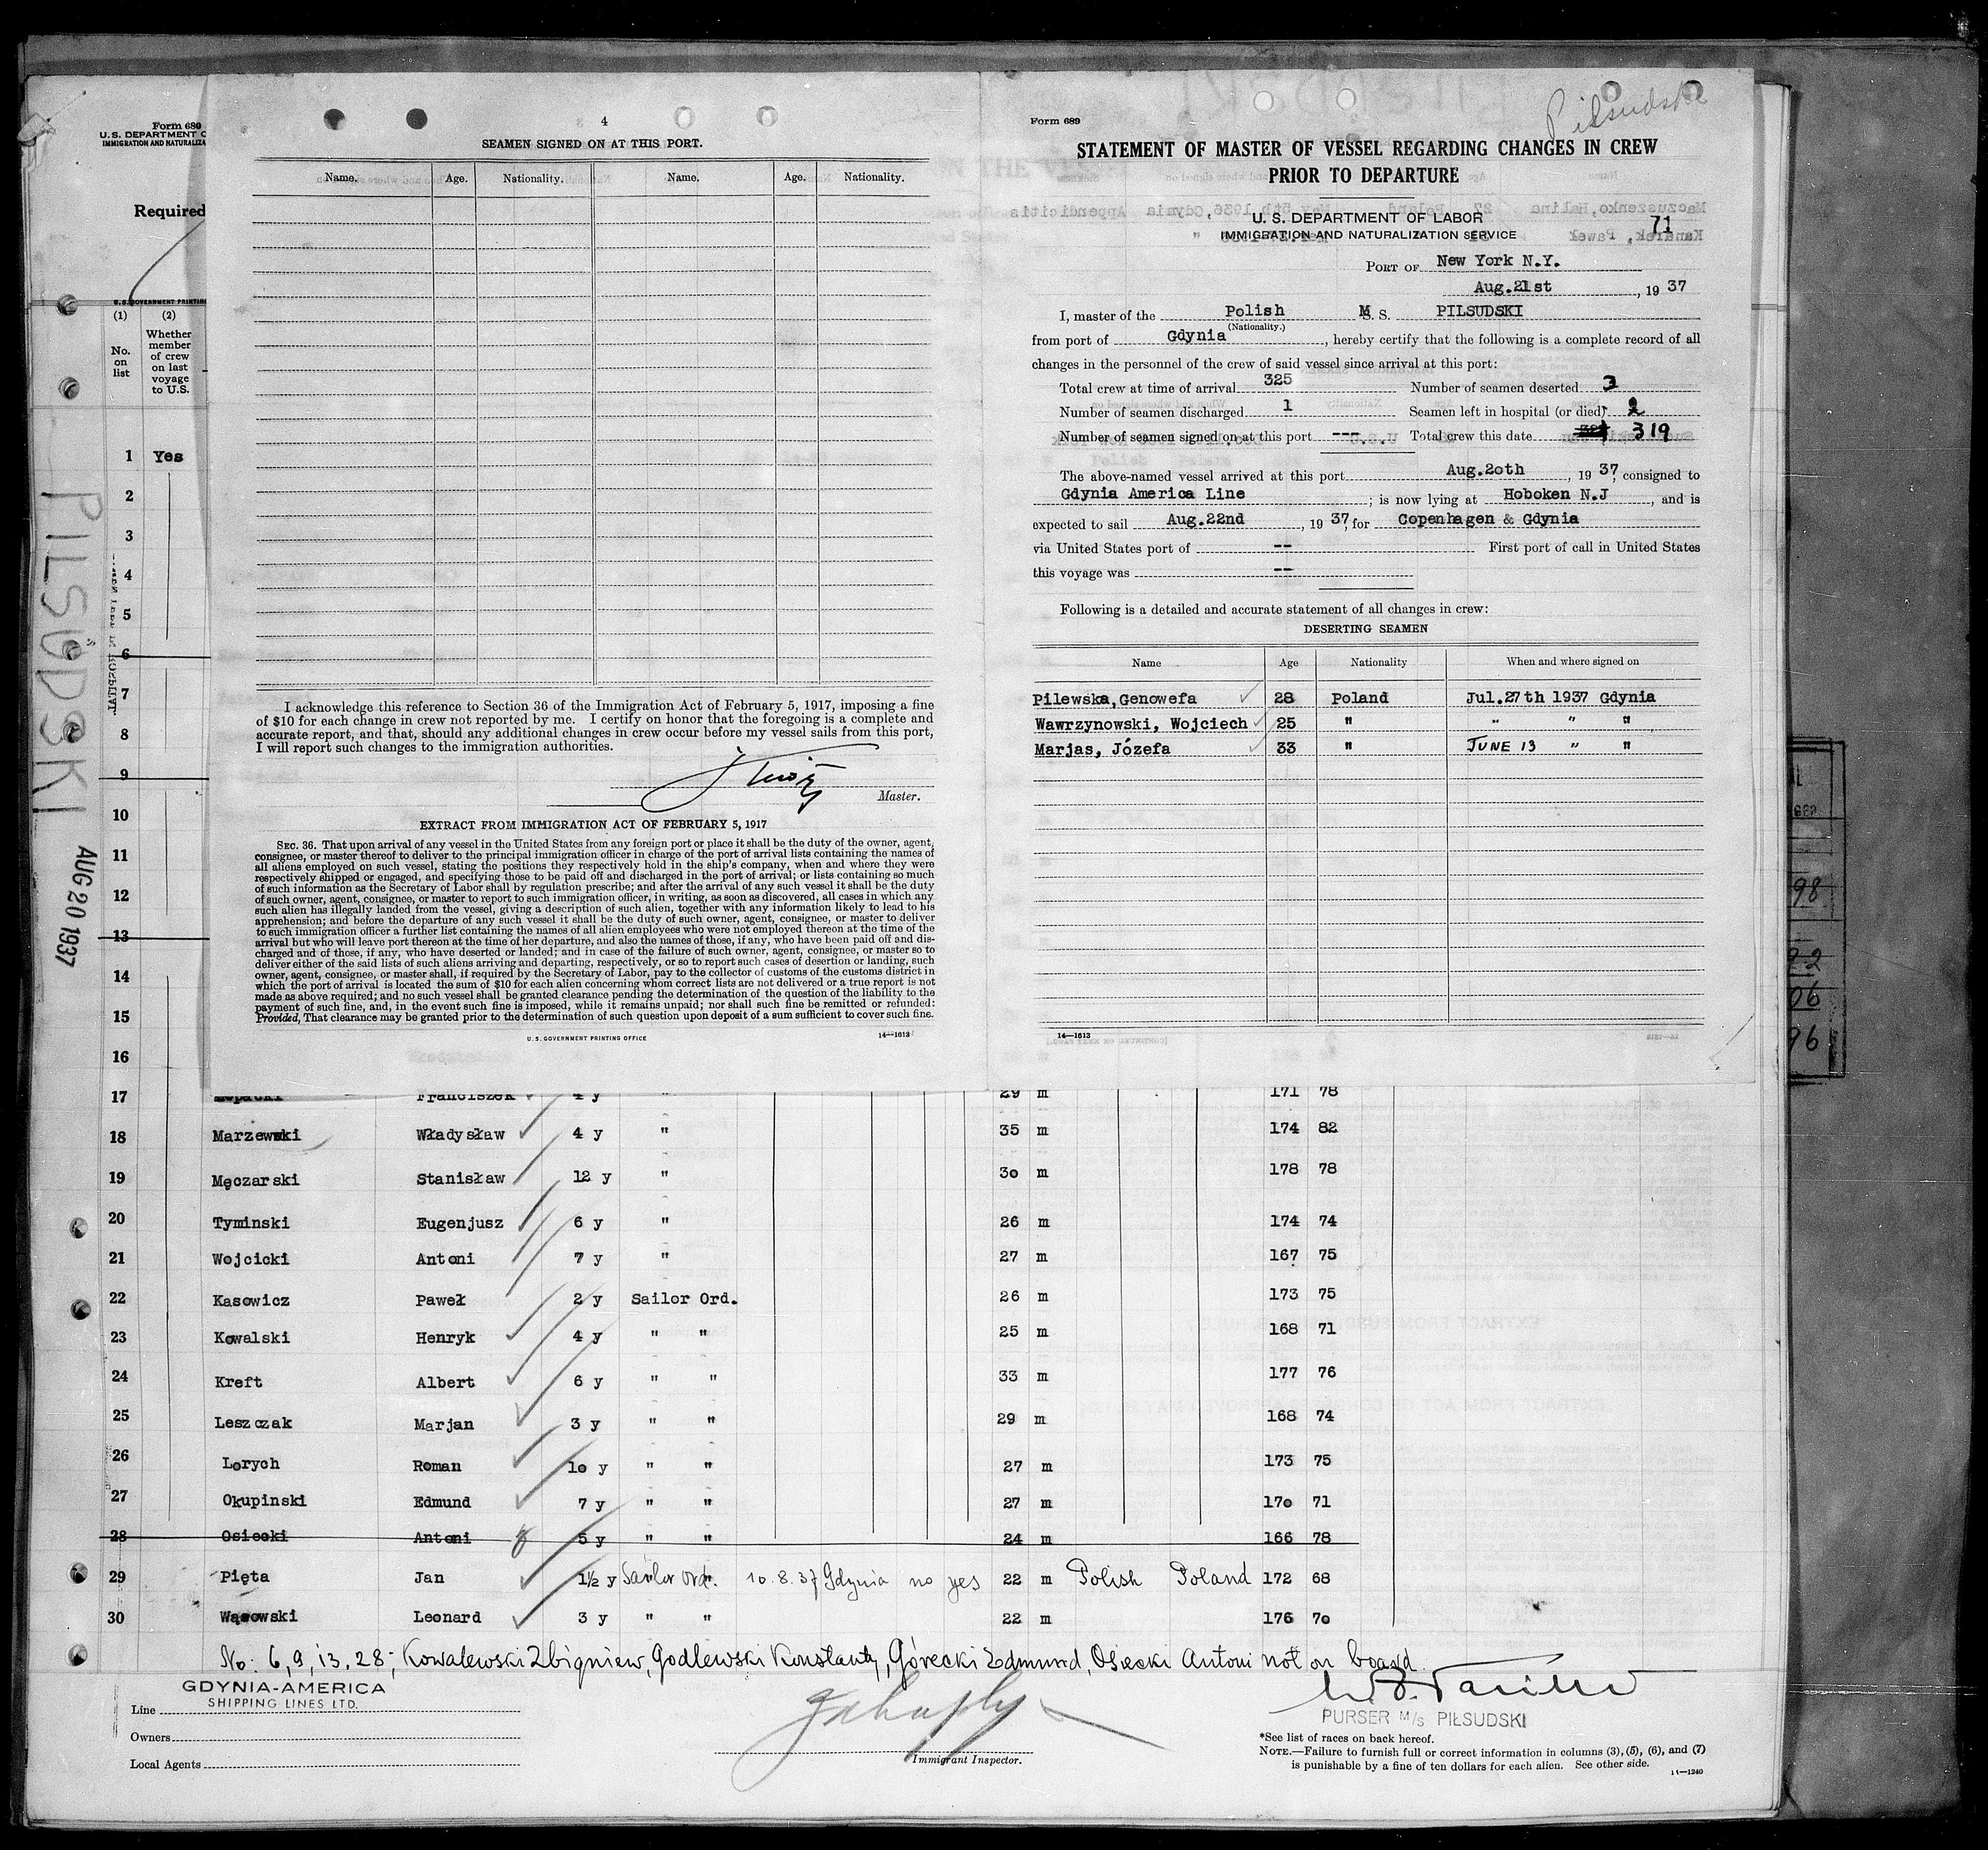 Form 680
U.S. DEPARTMENT O
IMMIGRATION AND NATURALIZA
Required
U.S. GOVERNMENT PRINTING
(1) (2)
No. on list
Whether member of crew on last voyage to U.S.
1 Yes
2
3
4
5
6
7
8
9
10
11
12
13
14
15
16
PILSUDSKI
AUG 20 1937
4
SEAMEN SIGNED ON AT THIS PORT.
Name. Age. Nationality. Name. Age. Nationality.
I acknowledge this reference to Section 36 of the Immigration Act of February 5, 1917, imposing a fine
of $10 for each change in crew not reported by me. I certify on honor that the foregoing is a complete and
accurate report, and that, should any additional changes in crew occur before my vessel sails from this port,
I will report such changes to the immigration authorities.
Master.
EXTRACT FROM IMMIGRATION ACT OF FEBRUARY 5, 1917
SEC. 36. That upon arrival of any vessel in the United States from any foreign port or place it shall be the duty of the owner, agent,
consignee, or master thereof to deliver to the principal immigration officer in charge of the port of arrival lists containing the names of
all aliens employed on such vessel, stating the positions they respectively hold in the ship's company, when and where they were
respectively shipped or engaged, and specifying those to be paid off and discharged in the port of arrival; or lists containing so much
of such information as the Secretary of Labor shall by regulation prescribe; and after the arrival of any such vessel it shall be the duty
of such owner, agent, consignee, or master to report to such immigration officer, in writing, as soon as discovered, all cases in which any
such alien has illegally landed from the vessel, giving a description of such alien, together with any information likely to lead to his
apprehension; and before the departure of any such vessel it shall be the duty of such owner, agent, consignee, or master to deliver
to such immigration officer a further list containing the names of all alien employees who were not employed thereon at the time of the
arrival but who will leave port thereon at the time of her departure, and also the names of those, if any, who have been paid off and dis-
charged and of those, if any, who have deserted or landed; and in case of the failure of such owner, agent, consignee, or master so to
deliver either of the said lists of such aliens arriving and departing, respectively, or so to report such cases of desertion or landing, such
owner, agent, consignee, or master shall, if required by the Secretary of Labor, pay to the collector of customs of the customs district in
which the port of arrival is located the sum of $10 for each alien concerning whom correct lists are not delivered or a true report is not
made as above required; and no such vessel shall be granted clearance pending the determination of the question of the liability to the
payment of such fine, and, in the event such fine is imposed, while it remains unpaid; nor shall such fine be remitted or refunded:
Provided, That clearance may be granted prior to the determination of such question upon deposit of a sum sufficient to cover such fine.
U.S. GOVERNMENT PRINTING OFFICE 14—1613
Form 689
Pilsudski
STATEMENT OF MASTER OF VESSEL REGARDING CHANGES IN CREW
PRIOR TO DEPARTURE
U. S. DEPARTMENT OF LABOR
IMMIGRATION AND NATURALIZATION SERVICE
71
PORT OF New York N.Y.
Aug.21st, 1937
I, master of the Polish M.S. PILSUDSKI
(Nationality.)
from port of Gdynia, hereby certify that the following is a complete record of all
changes in the personnel of the crew of said vessel since arrival at this port:
Total crew at time of arrival 325 Number of seamen deserted 3
Number of seamen discharged 1 Seamen left in hospital (or died) 2
Number of seamen signed on at this port --- Total crew this date 319
The above-named vessel arrived at this port Aug.2oth, 1937, consigned to
Gdynia America Line; is now lying at Hoboken N.J, and is
expected to sail Aug.22nd, 1937, for Copenhagen & Gdynia
via United States port of -- First port of call in United States
this voyage was --
Following is a detailed and accurate statement of all changes in crew:
DESERTING SEAMEN
Name Age Nationality When and where signed on
Pilewska, Genowefa 28 Poland Jul.27th 1937 Gdynia
Wawrzynowski, Wojciech 25 " " " "
Marjas, Józefa 33 " JUNE 13 " "
14—1613
17 Franciszek 4 y " 29 m 171 78
18 Marzewski Władysław 4 y " 35 m 174 82
19 Męczarski Stanisław 12 y " 3o m 178 78
20 Tyminski Eugenjusz 6 y " 26 m 174 74
21 Wojcicki Antoni 7 y " 27 m 167 75
22 Kasowicz Paweł 2 y Sailor Ord. 26 m 173 75
23 Kowalski Henryk 4 y " " 25 m 168 71
24 Kreft Albert 6 y " " 33 m 177 76
25 Leszczak Marjan 3 y " " 29 m 168 74
26 Lorych Roman 1o y " " 27 m 173 75
27 Okupinski Edmund 7 y " " 27 m 17o 71
28 Osiecki Antoni 5 y " " 24 m 166 78
29 Pięta Jan 1½ y Sailor Ord. 10.8.37 Gdynia no yes 22 m Polish Poland 172 68
30 Wąsowski Leonard 3 y " " 22 m 176 7o
No: 6, 9, 13, 28; Kowalewski Zbigniew, Godlewski Konstanty, Górecki Edmund, Osiecki Antoni not on board.
GDYNIA-AMERICA
SHIPPING LINES LTD.
Line
Owners
Local Agents
Immigrant Inspector.
PURSER M/S PIŁSUDSKI
*See list of races on back hereof.
NOTE.—Failure to furnish full or correct information in columns (3), (5), (6), and (7)
is punishable by a fine of ten dollars for each alien. See other side.
14—1240
98
06
96